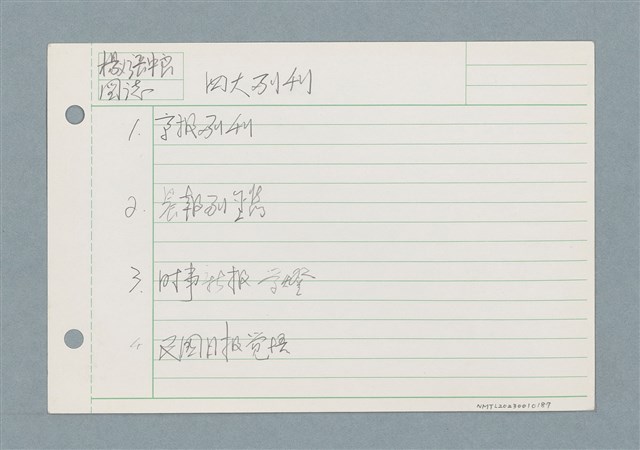 四大副刊
1. 京报副刊
2. 晨報副鐫
3. 时事新报 学燈
4. 民国日报觉悟
NMTL20230010187